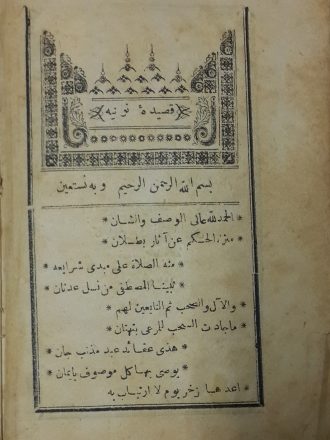 قصيدهٔ نونيه
بسم الله الرحمن الرحيم وبه نستعين
* الحمد لله عالى الوصف والشان *
* منزه الحكم عن آثار بطلان *
* منه الصلاة على مبدى شرايعه *
* نبينا المصطفى من نسل عدنان *
* والآل والصحب ثم التابعين لهم *
* ماجادت السحب للمرعى بتهتان *
* هذى عقائد عبد مذنب جان *
* يوصى بها كل موصوف بايمان *
* اعدها زخر يوم لا ارتياب به *